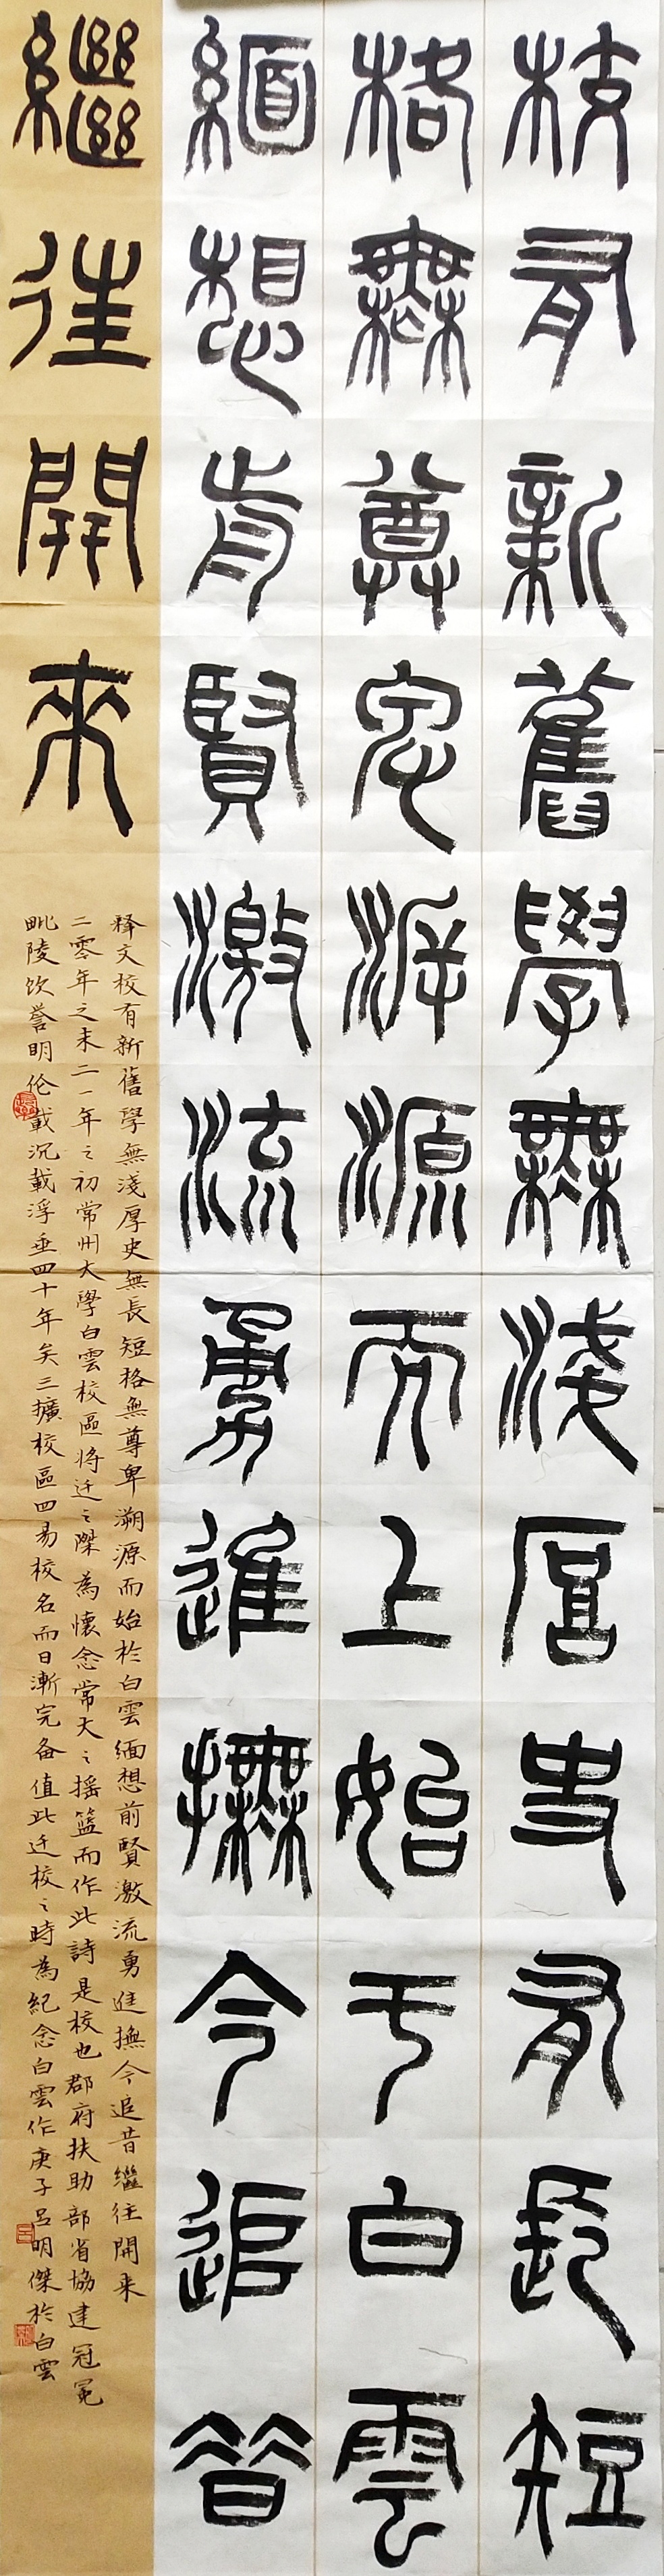 校有新舊學無淺厚史有長短
格無尊溯源而上始于白雲
緬想前賢激流勇進撫今追昔
繼往開來
释文校有新舊學無淺厚史無長短格無尊卑溯源而始於白雲緬想前賢激流勇進撫今追昔繼往開来
二零年之末二一年之初常州大學白雲校區将迁之際為懷念常大之摇籃而作此詩是校也郡府扶助部省協建冠冕
毗陵饮誉明伦載沉載浮垂四十年矣三擴校區四易校名而日漸完备值此迁校之時為紀念白雲作庚子呂明傑於白雲